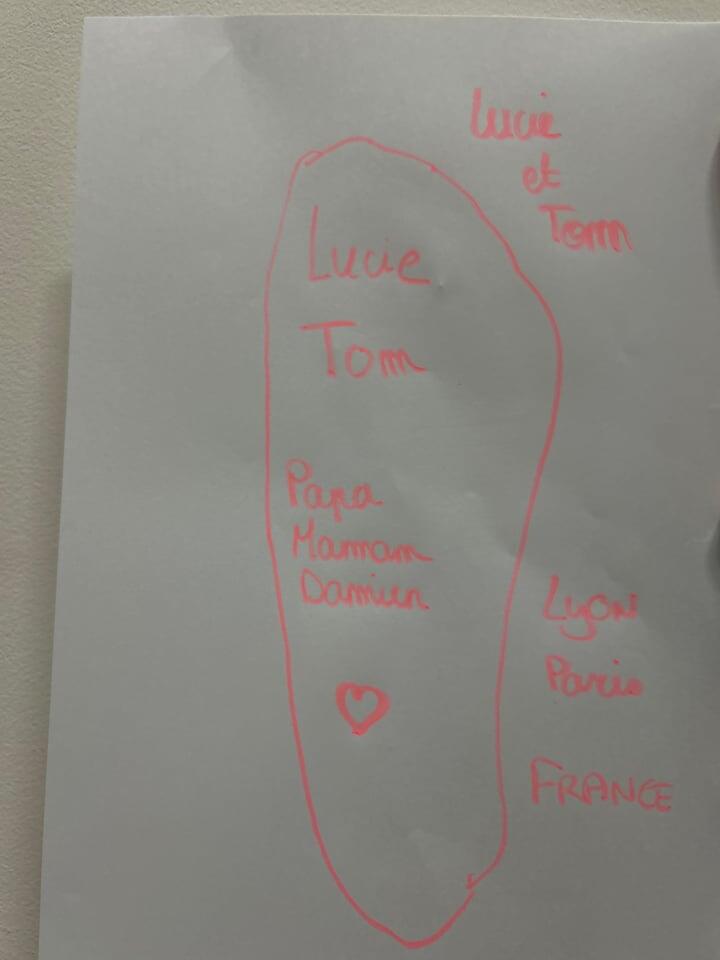 Lucie
et
Tom
Lucie
Tom
Papa
Maman
Damien
Lyon
Paris
FRANCE